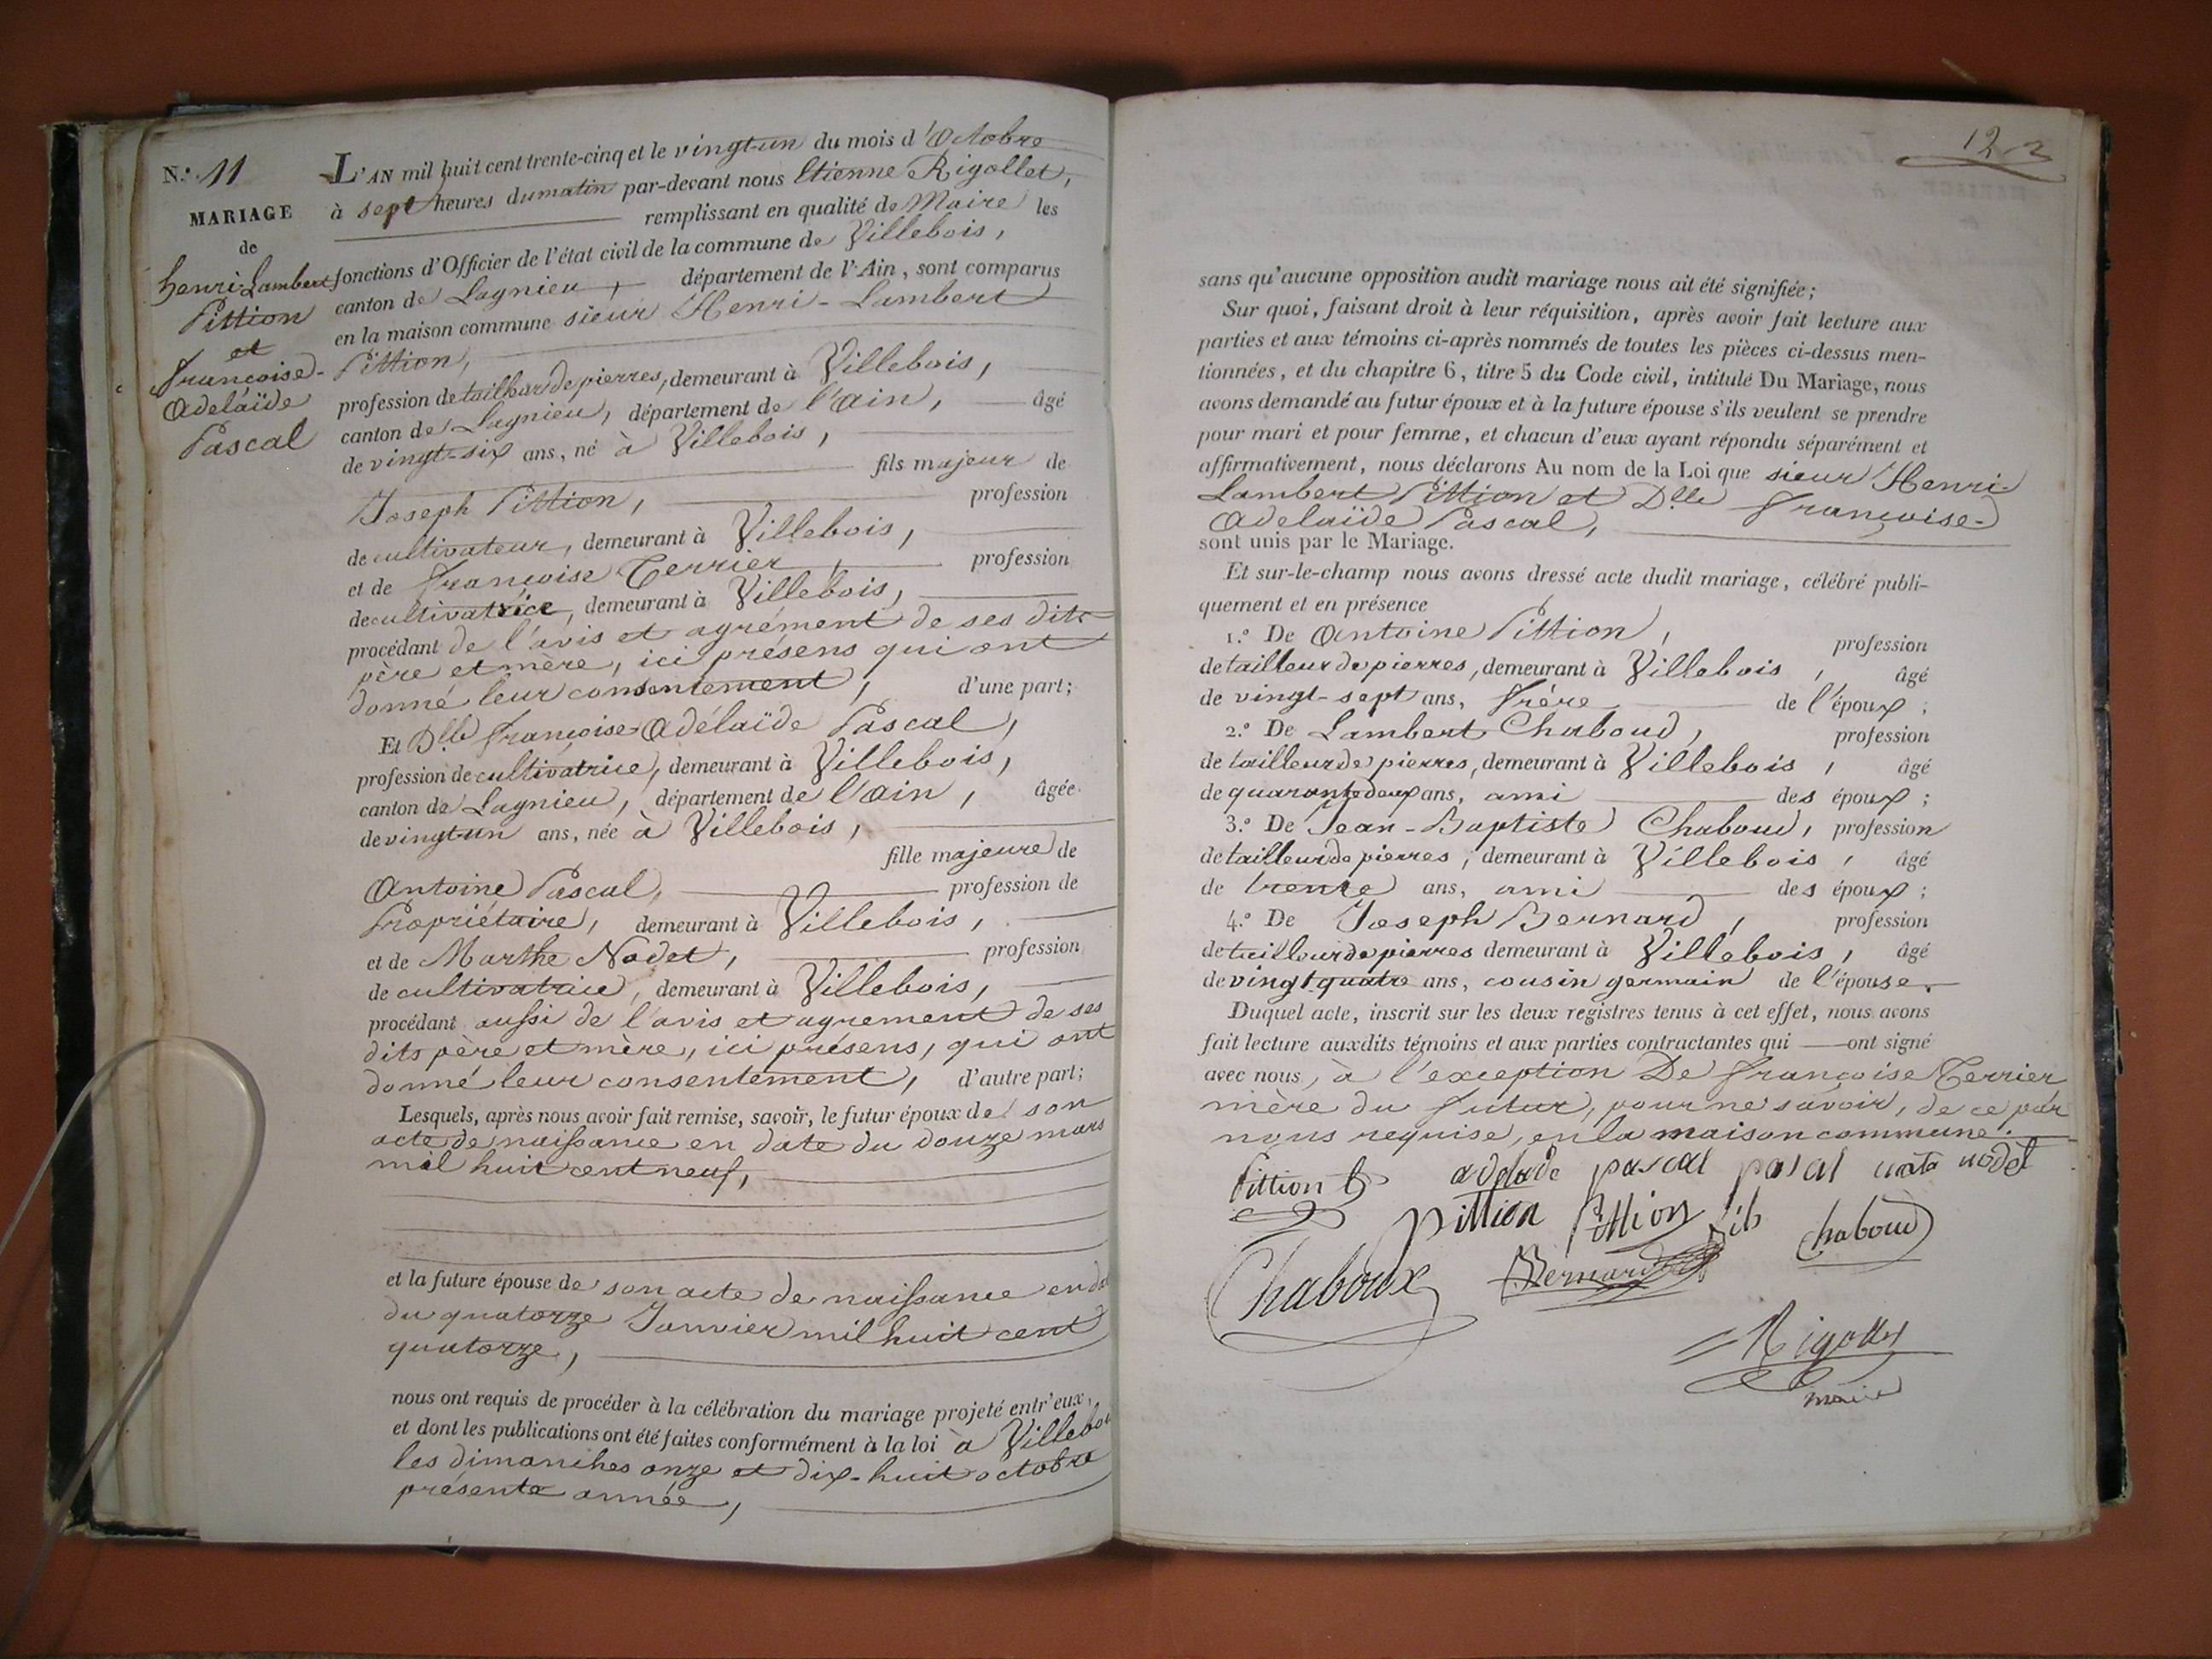 N.° 11
MARIAGE
de
henri-Lambert
Pittion
et
françoise-
Adelaïde
Pascal
L'AN mil huit cent trente-cinq et le vingt-un du mois d'Octobre
à sept heures du matin par-devant nous Etienne Rigollet,
remplissant en qualité de Maire les
fonctions d'Officier de l'état civil de la commune de Villebois,
canton de Lagnieu, département de l'Ain, sont comparus
en la maison commune sieur Henri-Lambert
Pittion,
profession de tailleur de pierres, demeurant à Villebois,
canton de Lagnieu, département de l'Ain, âgé
de vingt-six ans, né à Villebois,
fils majeur de
Joseph Pittion, profession
de cultivateur, demeurant à Villebois,
et de françoise Terrier, profession
de cultivatrice, demeurant à Villebois,
procédant de l'avis et agrément de ses dits
père et mère, ici présens qui ont
donné leur consentement, d'une part;
Et Dlle françoise Adélaïde Pascal,
profession de cultivatrice, demeurant à Villebois,
canton de Lagnieu, département de l'Ain, âgée
de vingt-un ans, née à Villebois,
fille majeure de
Antoine Pascal, profession de
Propriétaire, demeurant à Villebois,
et de Marthe Nodet, profession
de cultivatrice, demeurant à Villebois,
procédant aussi de l'avis et agrement de ses
dits père et mère, ici présens, qui ont
donné leur consentement, d'autre part;
Lesquels, après nous avoir fait remise, savoir, le futur époux de son
acte de naissance en date du douze mars
mil huit cent neuf,
et la future épouse de son acte de naissance en
du quatorze Janvier mil huit cent
quatorze,
nous ont requis de procéder à la célébration du mariage projeté entr'eux,
et dont les publications ont été faites conformément à la loi à Villebois
les dimanches onze et dix-huit octobre
présente année,
12
sans qu'aucune opposition audit mariage nous ait été signifiée;
Sur quoi, faisant droit à leur réquisition, après avoir fait lecture aux
parties et aux témoins ci-après nommés de toutes les pièces ci-dessus men-
tionnées, et du chapitre 6, titre 5 du Code civil, intitulé Du Mariage, nous
avons demandé au futur époux et à la future épouse s'ils veulent se prendre
pour mari et pour femme, et chacun d'eux ayant répondu séparément et
affirmativement, nous déclarons Au nom de la Loi que sieur Henri-
Lambert Pittion et Dlle françoise-
Adelaïde Pascal,
sont unis par le Mariage.
Et sur-le-champ nous avons dressé acte dudit mariage, célébré publi-
quement et en présence
1.° De Antoine Pittion, profession
de tailleur de pierres, demeurant à Villebois, âgé
de vingt-sept ans, frère de l'époux;
2.° De Lambert Chaboud, profession
de tailleur de pierres, demeurant à Villebois, âgé
de quarante deux ans, ami des époux;
3.° De Jean-Baptiste Chaboud, profession
de tailleur de pierres, demeurant à Villebois, âgé
de trente ans, ami des époux;
4.° De Joseph Bernard, profession
de tailleur de pierres demeurant à Villebois, âgé
de vingt quatre ans, cousin germain de l'épouse.
Duquel acte, inscrit sur les deux registres tenus à cet effet, nous avons
fait lecture auxdits témoins et aux parties contractantes qui ont signé
avec nous, à l'exception De françoise Terrier
mère du futur, pour ne savoir, de ce par
nous requise, en la maison commune.
Pittion adelade pascal pascal nodet
pittion Pittion fils chaboud
Chaboux Bernard
Rigollet
maire